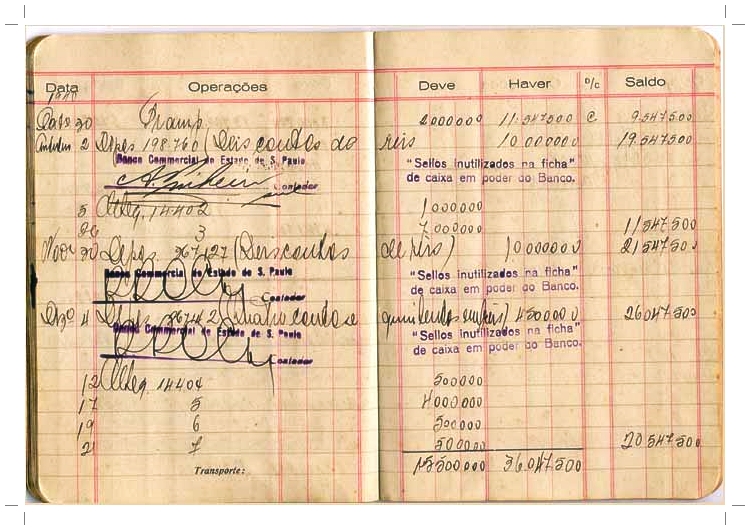 Data Operações Deve Haver D/c Saldo
30 Transp. 2000000 11.547500 C 9.547500
2 Depos 198.760 (Deis contos de reis 10000000 19.547500
Banco Commercial do Estado de S. Paulo
"Sellos inutilizados na ficha"
Contador
de caixa em poder do Banco.
5 14402 1000000
3 7000000 11547500
Novo 30 Depos 267127 (Deis contos de réis) 10000000 21547500
Banco Commercial do Estado de S. Paulo
"Sellos inutilizados na ficha"
Contador
de caixa em poder do Banco.
Dzo 4 Depos (Quatro contos e quinhentos mil réis) 4500000 26047500
Banco Commercial do Estado de S. Paulo
"Sellos inutilizados na ficha"
Contador
de caixa em poder do Banco.
12 14404 500000
17 5 4000000
19 6 500000
7 500000 20547500
Transporte: 15500000 36047500